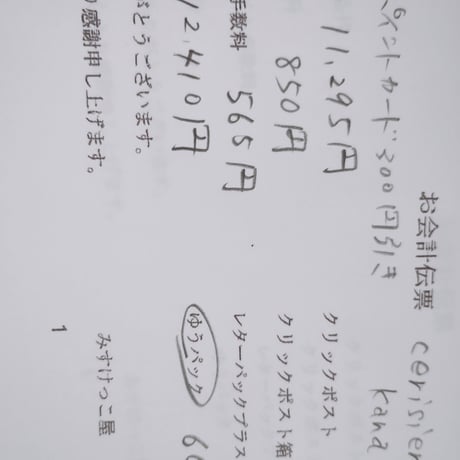 お会計伝票 cerisier
イントカード300円引き kana
11,295円 クリックポスト
850円 クリックポスト箱
手数料 565円 レターパックプラス
12,410円 ゆうパック 6
がとうございます。
り感謝申し上げます。 みすけっこ屋
1